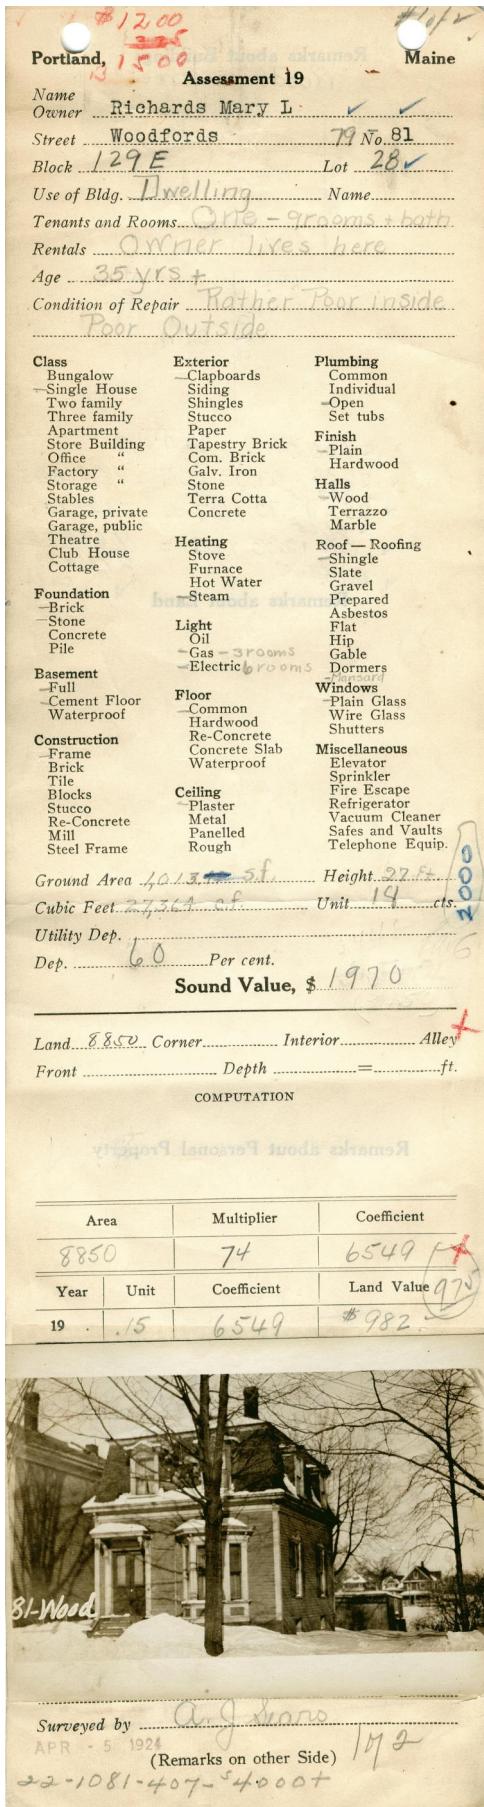 $1200 #1 of 2
Portland, Maine
B 1500
Assessment 19
Name
Owner Richards Mary L
Street Woodfords 79 No. 81
Block 129 E Lot 28
Use of Bldg. Dwelling Name
Tenants and Rooms One - 9 rooms + bath
Rentals Owner lives here
Age 35 yrs +
Condition of Repair Rather Poor inside
Poor Outside
Class
Bungalow
Single House
Two family
Three family
Apartment
Store Building
Office "
Factory "
Storage "
Stables
Garage, private
Garage, public
Theatre
Club House
Cottage
Foundation
Brick
Stone
Concrete
Pile
Basement
Full
Cement Floor
Waterproof
Construction
Frame
Brick
Tile
Blocks
Stucco
Re-Concrete
Mill
Steel Frame
Exterior
Clapboards
Siding
Shingles
Stucco
Paper
Tapestry Brick
Com. Brick
Galv. Iron
Stone
Terra Cotta
Concrete
Heating
Stove
Furnace
Hot Water
Steam
Light
Oil
Gas - 3 rooms
Electric 6 rooms
Floor
Common
Hardwood
Re-Concrete
Concrete Slab
Waterproof
Ceiling
Plaster
Metal
Panelled
Rough
Plumbing
Common
Individual
Open
Set tubs
Finish
Plain
Hardwood
Halls
Wood
Terrazzo
Marble
Roof — Roofing
Shingle
Slate
Gravel
Prepared
Asbestos
Flat
Hip
Gable
Dormers
Mansard
Windows
Plain Glass
Wire Glass
Shutters
Miscellaneous
Elevator
Sprinkler
Fire Escape
Refrigerator
Vacuum Cleaner
Safes and Vaults
Telephone Equip.
Ground Area 1,013 s.f. Height 27 Ft.
Cubic Feet 27,364 c.f. Unit 14 cts.
2000
Utility Dep.
Dep. 60 Per cent.
Sound Value, $ 1970
Land 8850 Corner Interior Alley
Front Depth = ft.
COMPUTATION
Area Multiplier Coefficient
8850 74 6549
Year Unit Coefficient Land Value 975
19 . .15 6549 $982.
81-Wood
Surveyed by A. J. Sears
APR - 5 1924
(Remarks on other Side) 172
22-1081-407-$4000+